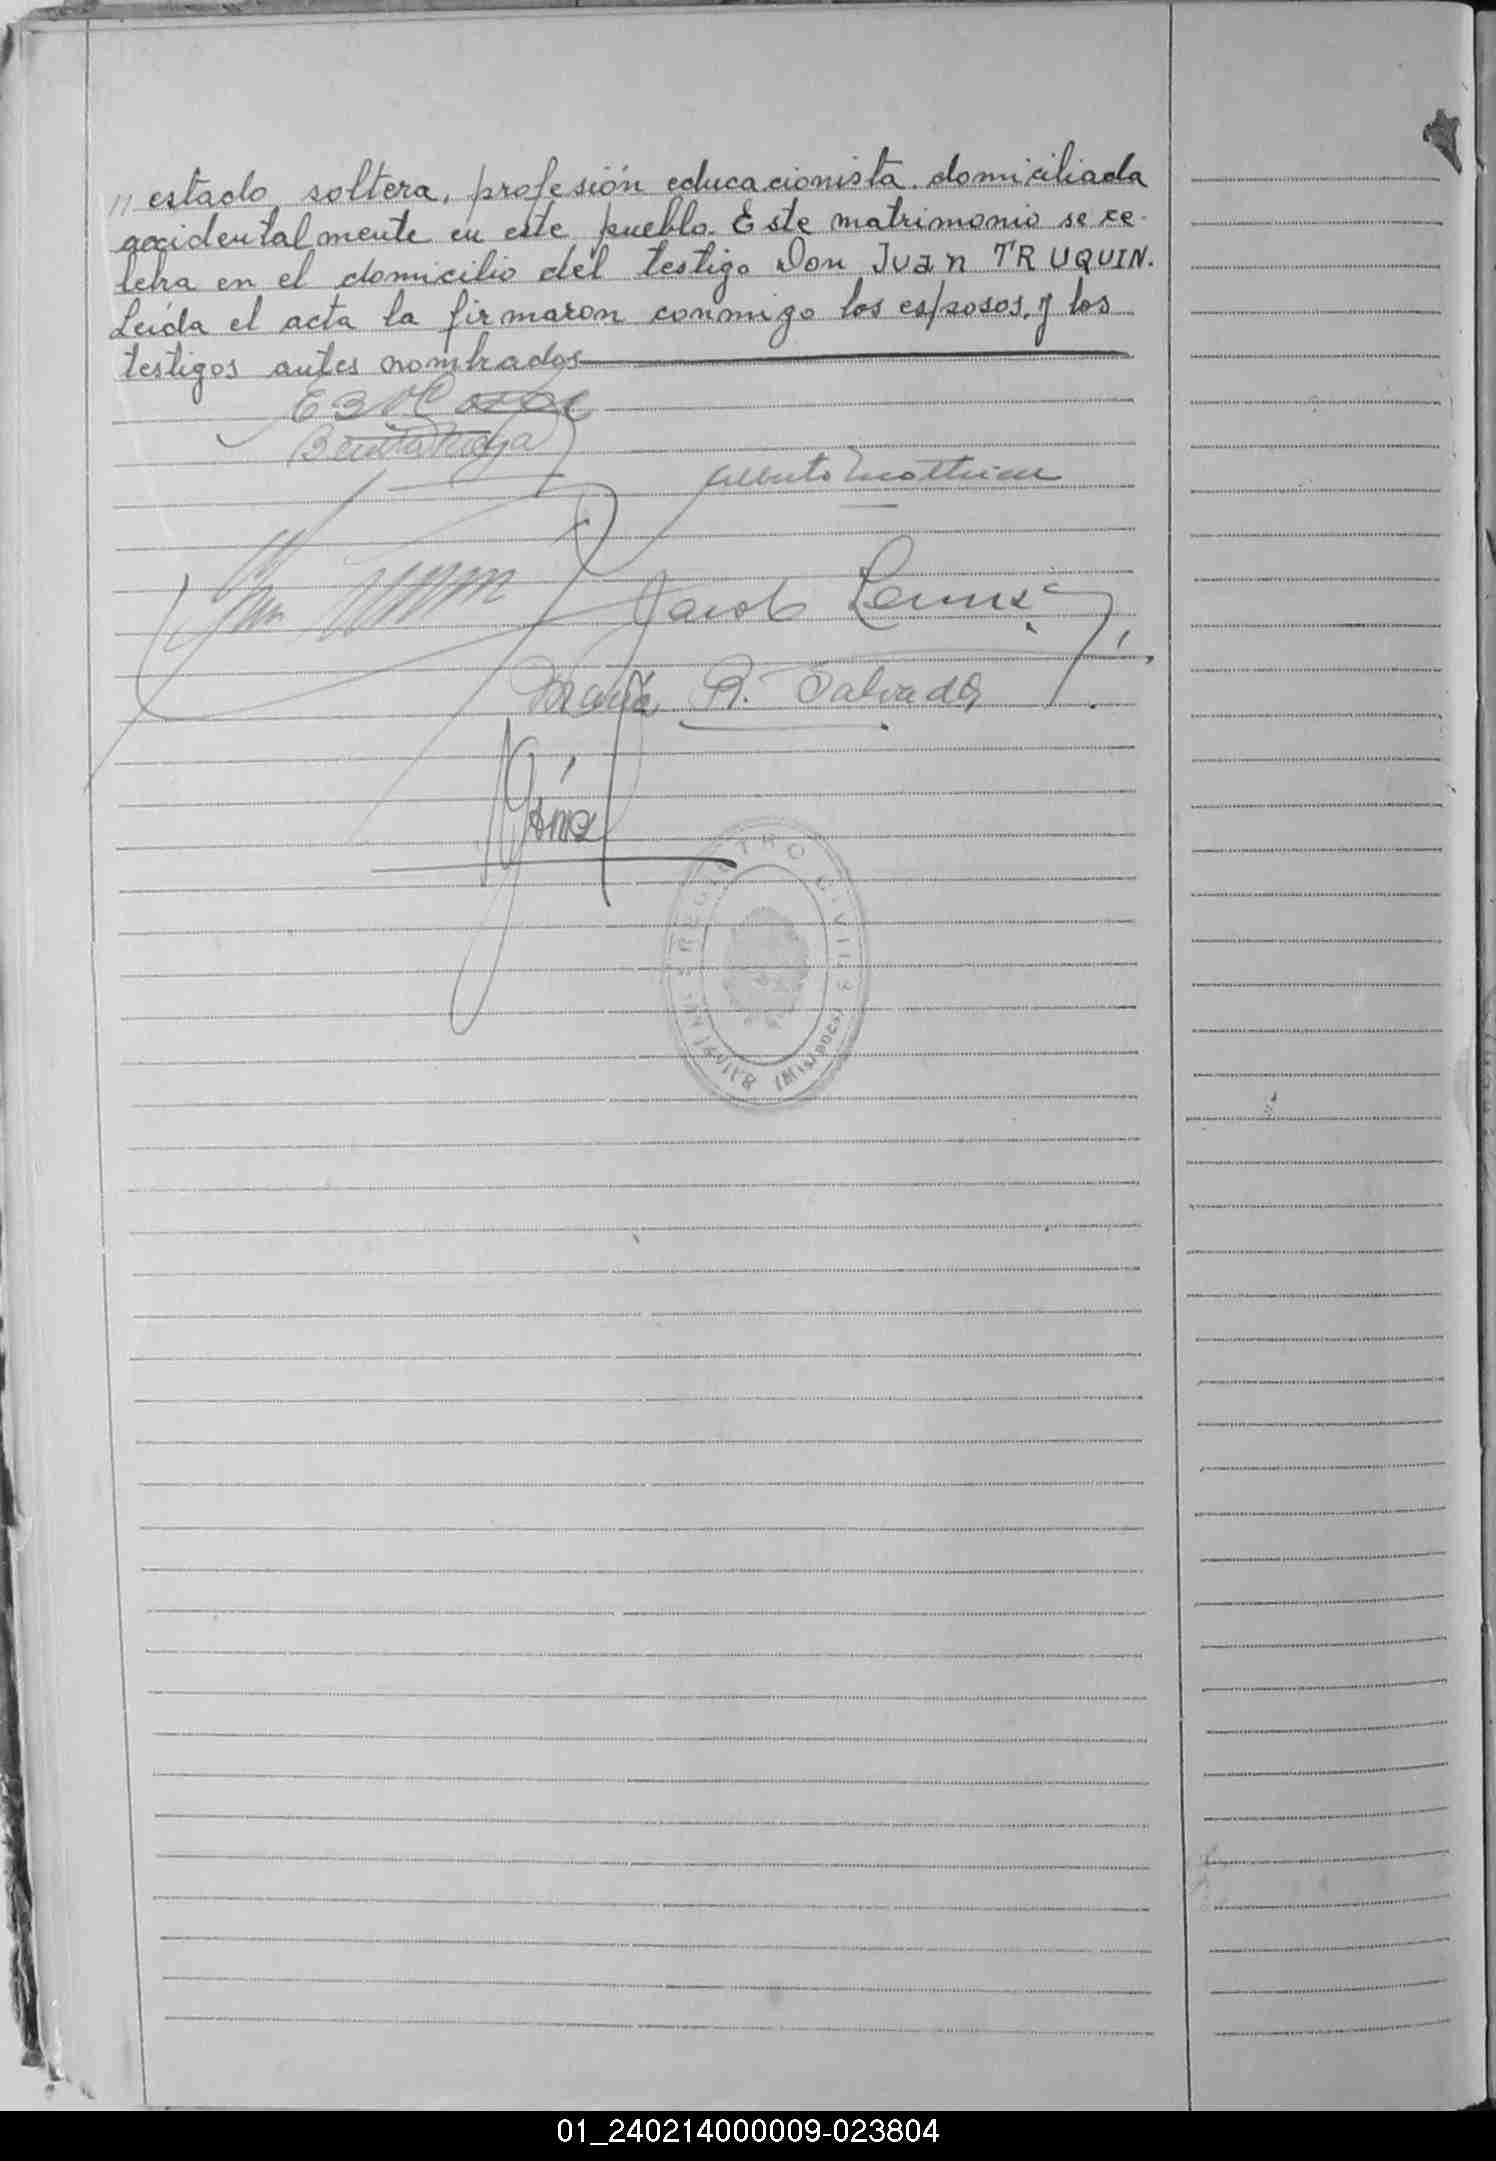 " estado soltera, profesión educacionista. domiciliada
accidentalmente en este pueblo. Este matrimonio se ce-
lebra en el domicilio del testigo Don Juan TRUQUIN.
Leída el acta la firmaron conmigo los esposos, y los
testigos antes nombrados
Alberto
Jacob
María R. Salvador
REGISTRO CIVIL
JAVIER (Misiones)
01_240214000009-023804